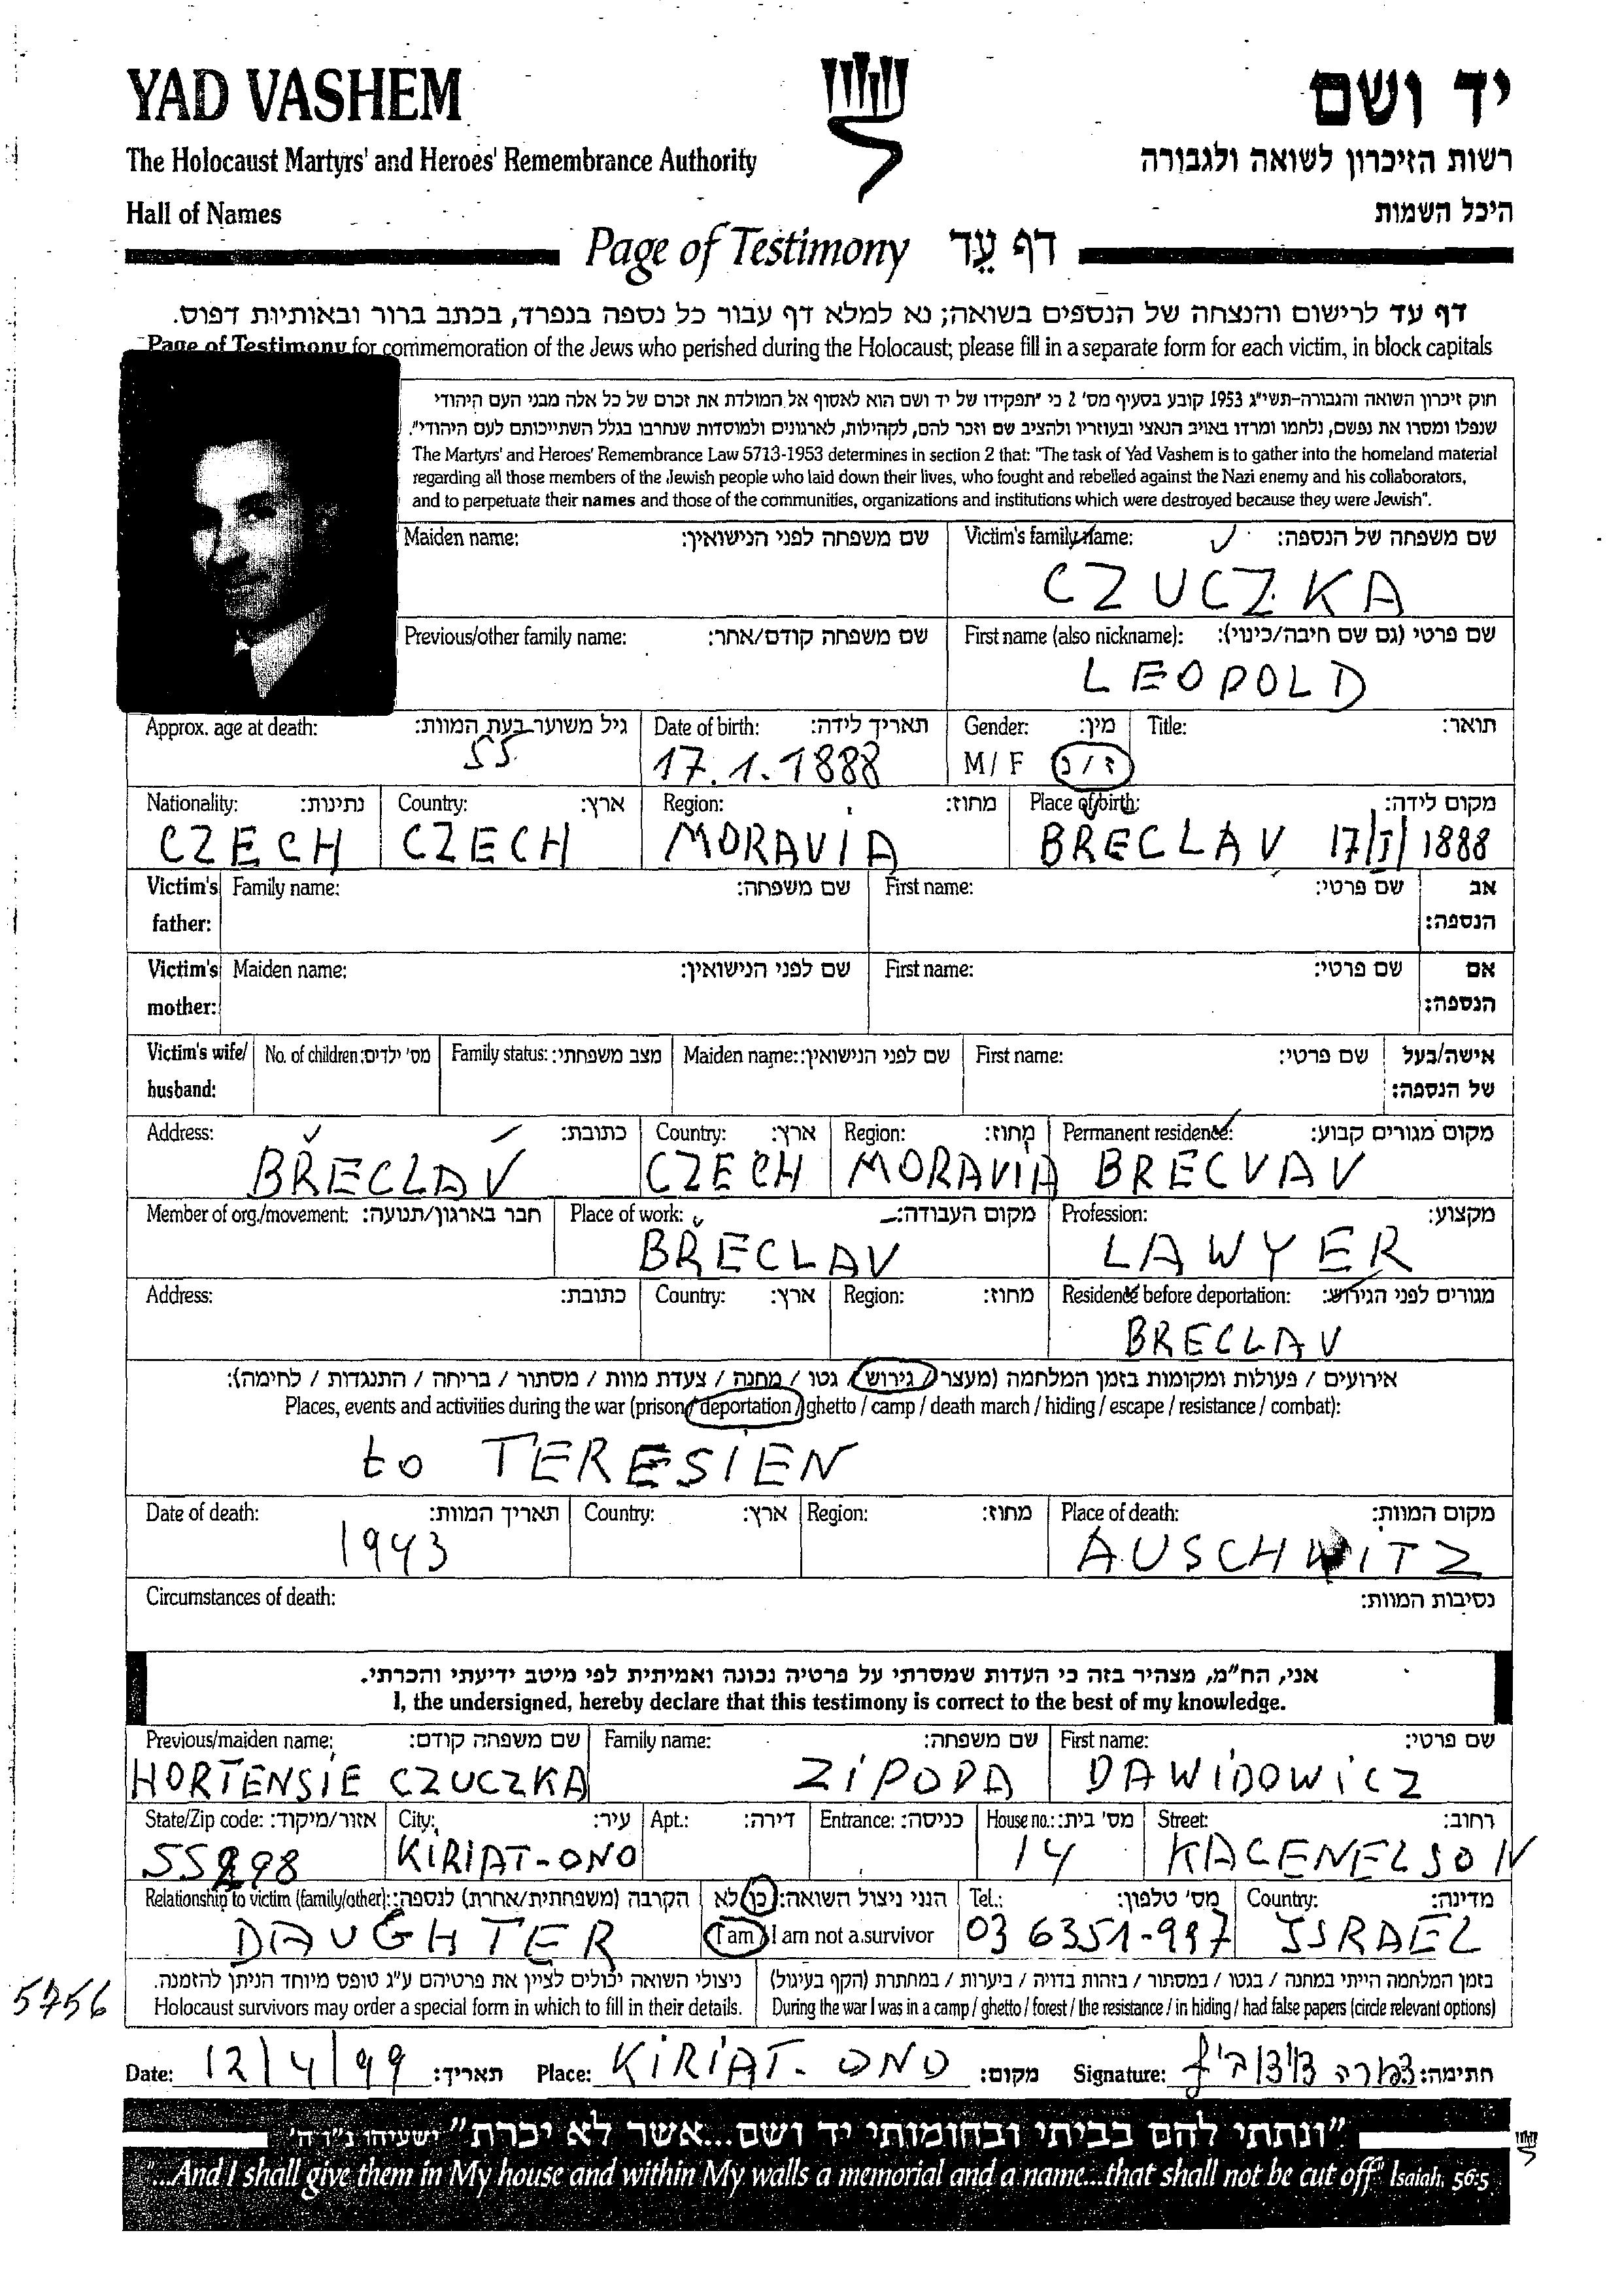 YAD VASHEM
יד ושם
The Holocaust Martyrs' and Heroes' Remembrance Authority
רשות הזיכרון לשואה ולגבורה
Hall of Names
היכל השמות
Page of Testimony דף עֵד
דף עד לרישום והנצחה של הנספים בשואה; נא למלא דף עבור כל נספה בנפרד, בכתב ברור ובאותיות דפוס.
Page of Testimony for commemoration of the Jews who perished during the Holocaust; please fill in a separate form for each victim, in block capitals
חוק זיכרון השואה והגבורה-תשי"ג 1953 קובע בסעיף מס' 2 כי "תפקידו של יד ושם הוא לאסוף אל המולדת את זכרם של כל אלה מבני העם היהודי
שנפלו ומסרו את נפשם, נלחמו ומרדו באויב הנאצי ובעוזריו ולהציב שם וזכר להם, לקהילות, לארגונים ולמוסדות שנחרבו בגלל השתייכותם לעם היהודי".
The Martyrs' and Heroes' Remembrance Law 5713-1953 determines in section 2 that: "The task of Yad Vashem is to gather into the homeland material
regarding all those members of the Jewish people who laid down their lives, who fought and rebelled against the Nazi enemy and his collaborators,
and to perpetuate their names and those of the communities, organizations and institutions which were destroyed because they were Jewish".
Maiden name: שם משפחה לפני הנישואין: Victim's family name: שם משפחה של הנספה:
CZUCZKA
Previous/other family name: שם משפחה קודם/אחר: First name (also nickname): שם פרטי (גם שם חיבה/כינוי):
LEOPOLD
Approx. age at death: גיל משוער בעת המוות: Date of birth: תאריך לידה: Gender: מין: Title: תואר:
55 17.1.1888 M/F ז/נ
Nationality: נתינות: Country: ארץ: Region: מחוז: Place of birth: מקום לידה:
CZECH CZECH MORAVIA BRECLAV 17/I/1888
Victim's father: Family name: שם משפחה: First name: שם פרטי: אב הנספה:
Victim's mother: Maiden name: שם לפני הנישואין: First name: שם פרטי: אם הנספה:
Victim's wife/husband: No. of children: מס' ילדים: Family status: מצב משפחתי: Maiden name: שם לפני הנישואין: First name: שם פרטי: אישה/בעל של הנספה:
Address: כתובת: Country: ארץ: Region: מחוז: Permanent residence: מקום מגורים קבוע:
BRECLAV CZECH MORAVIA BRECVAV
Member of org./movement: חבר בארגון/תנועה: Place of work: מקום העבודה: Profession: מקצוע:
BRECLAV LAWYER
Address: כתובת: Country: ארץ: Region: מחוז: Residence before deportation: מגורים לפני הגירוש:
BRECLAV
אירועים / פעולות ומקומות בזמן המלחמה (מעצר / גירוש / גטו / מחנה / צעדת מוות / מסתור / בריחה / התנגדות / לחימה):
Places, events and activities during the war (prison / deportation / ghetto / camp / death march / hiding / escape / resistance / combat):
to TERESIEN
Date of death: תאריך המוות: Country: ארץ: Region: מחוז: Place of death: מקום המוות:
1943 AUSCHWITZ
Circumstances of death: נסיבות המוות:
אני, הח"מ, מצהיר בזה כי העדות שמסרתי על פרטיה נכונה ואמיתית לפי מיטב ידיעתי והכרתי.
I, the undersigned, hereby declare that this testimony is correct to the best of my knowledge.
Previous/maiden name: שם משפחה קודם: Family name: שם משפחה: First name: שם פרטי:
HORTENSIE CZUCZKA ZIPODA DAWIDOWICZ
State/Zip code: אזור/מיקוד: City: עיר: Apt.: דירה: Entrance: כניסה: House no.: מס' בית: Street: רחוב:
KIRIAT-ONO 14 KACENELSON
Relationship to victim (family/other): הקרבה (משפחתית/אחרת) לנספה: הנני ניצול השואה: כן לא Tel.: מס' טלפון: Country: מדינה:
DAUGHTER I am I am not a survivor 03 6351-997 ISRAEL
ניצולי השואה יכולים לציין את פרטיהם ע"ג טופס מיוחד הניתן להזמנה. בזמן המלחמה הייתי במחנה / בגטו / במסתור / בזהות בדויה / ביערות / במחתרת (הקף בעיגול)
5756 Holocaust survivors may order a special form in which to fill in their details. During the war I was in a camp / ghetto / forest / the resistance / in hiding / had false papers (circle relevant options)
Date: 12/4/99 תאריך: Place: KIRIAT-ONO מקום: Signature: חתימה:
"ונתתי להם בביתי ובחומותי יד ושם...אשר לא יכרת" ישעיהו נ"ו ה'
"...And I shall give them in My house and within My walls a memorial and a name...that shall not be cut off" Isaiah, 56:5